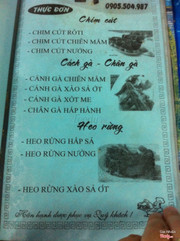 THỰC ĐƠN
0905.504.987
Chim cút
- CHIM CÚT RÔTI
- CHIM CÚT CHIÊN MẮM
- CHIM CÚT NƯỚNG
Cách gà - Chân gà
- CÁNH GÀ CHIÊN MẮM
- CÁNH GÀ XÁO SẢ ỚT
- CÁNH GÀ XỐT ME
- CHÂN GÀ HẤP HÀNH
Heo rừng
- HEO RỪNG HẤP SẢ
- HEO RỪNG NƯỚNG
- HEO RỪNG XÁO SẢ ỚT
Hân hạnh được phục vụ Quý khách !